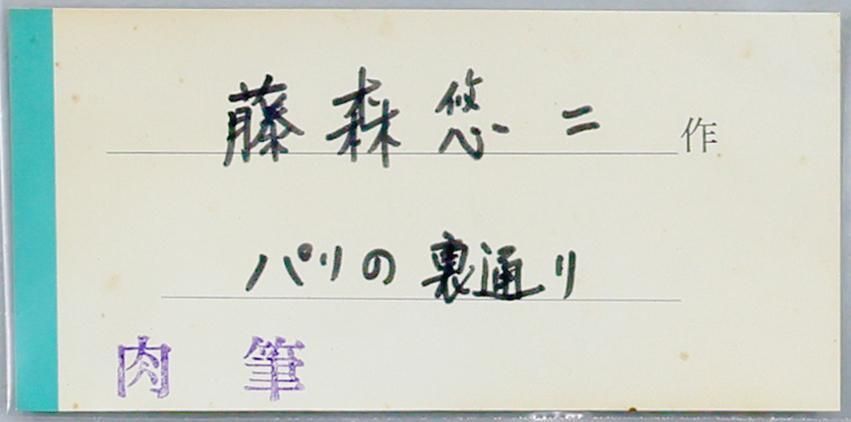 藤森悠二 作
パリの裏通り
肉筆